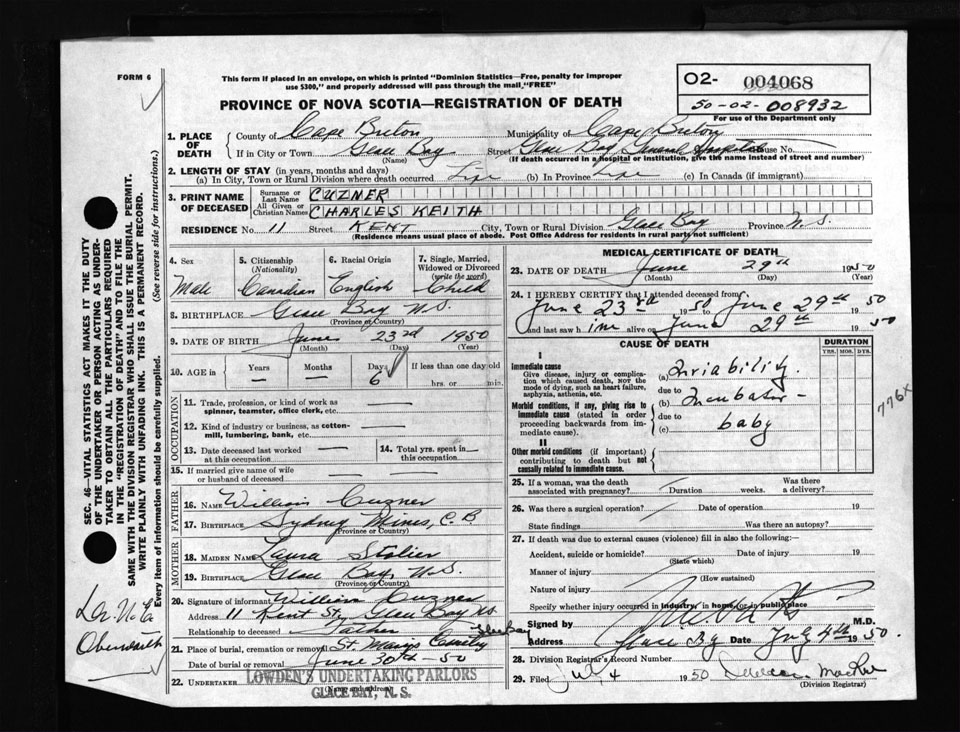 FORM 6
This form if placed in an envelope, on which is printed "Dominion Statistics—Free, penalty for improper
use $300," and properly addressed will pass through the mail "FREE"
O2- 004068
50-02-008932
For use of the Department only
PROVINCE OF NOVA SCOTIA—REGISTRATION OF DEATH
1. PLACE OF DEATH
County of Cape Breton Municipality of Cape Breton
If in City or Town Glace Bay Street Glace Bay General Hospital House No.
(Name) (If death occurred in a hospital or institution, give the name instead of street and number)
2. LENGTH OF STAY (in years, months and days)
(a) In City, Town or Rural Division where death occurred Life (b) In Province Life (c) In Canada (if immigrant)
3. PRINT NAME OF DECEASED
Surname or Last Name CUZNER
All Given or Christian Names CHARLES KEITH
RESIDENCE No. 11 Street KENT City, Town or Rural Division Glace Bay Province N.S.
(Residence means usual place of abode. Post Office Address for residents in rural parts not sufficient)
4. Sex
Male
5. Citizenship
(Nationality)
Canadian
6. Racial Origin
English
7. Single, Married, Widowed or Divorced
(write the word)
Child
8. BIRTHPLACE Glace Bay N.S.
(Province or Country)
9. DATE OF BIRTH June 23rd 1950
(Month) (Day) (Year)
10. AGE in Years Months Days If less than one day old
— — 6 hrs. or min.
OCCUPATION
11. Trade, profession, or kind of work as
spinner, teamster, office clerk, etc. —
12. Kind of industry or business, as cotton-
mill, lumbering, bank, etc.
13. Date deceased last worked
at this occupation —
14. Total yrs. spent in
this occupation —
15. If married give name of wife
or husband of deceased
FATHER
16. NAME William Cuzner
17. BIRTHPLACE Sydney Mines, C.B.
(Province or Country)
MOTHER
18. MAIDEN NAME Laura
19. BIRTHPLACE Glace Bay, N.S.
(Province or Country)
20. Signature of informant William Cuzner
Address 11 Kent St., Glace Bay NS
Relationship to deceased Father
21. Place of burial, cremation or removal St. Mary's Cemetry Glace Bay
Date of burial or removal June 30th - 50
22. UNDERTAKER LOWDEN'S UNDERTAKING PARLORS
(Name and address)
GLACE BAY, N. S.
MEDICAL CERTIFICATE OF DEATH
23. DATE OF DEATH June 29th 1950
(Month) (Day) (Year)
24. I HEREBY CERTIFY that I attended deceased from
June 23rd 1950 to June 29th 50
and last saw him alive on June 29th 1950
CAUSE OF DEATH
DURATION
YRS. MOS. DYS.
I
Immediate cause
Give disease, injury or complica-
tion which caused death, not the
mode of dying, such as heart failure,
asphyxia, asthenia, etc.
(a) Inviability.
due to
Morbid conditions, if any, giving rise to
immediate cause (stated in order
proceeding backwards from im-
mediate cause).
(b) Incubator -
due to
(c) baby
II
Other morbid conditions (if important)
contributing to death but not
causally related to immediate cause.
776x
25. If a woman, was the death
associated with pregnancy? Duration weeks. Was there a delivery?
26. Was there a surgical operation? Date of operation 19
State findings Was there an autopsy?
27. If death was due to external causes (violence) fill in also the following:
Accident, suicide or homicide? Date of injury 19
(State which)
Manner of injury
(How sustained)
Nature of injury
Specify whether injury occurred in industry, in home, or in public place
Signed by M.D.
Address Glace By Date July 4th 1950.
28. Division Registrar's Record Number
29. Filed Jul 4 1950 MacRae
(Division Registrar)
SEC. 46—VITAL STATISTICS ACT MAKES IT THE DUTY
OF THE UNDERTAKER OR PERSON ACTING AS UNDER-
TAKER TO OBTAIN ALL THE PARTICULARS REQUIRED
IN THE "REGISTRATION OF DEATH" AND TO FILE THE
SAME WITH THE DIVISION REGISTRAR WHO SHALL ISSUE THE BURIAL PERMIT.
WRITE PLAINLY WITH UNFADING INK. THIS IS A PERMANENT RECORD.
Every item of information should be carefully supplied. (See reverse side for instructions.)